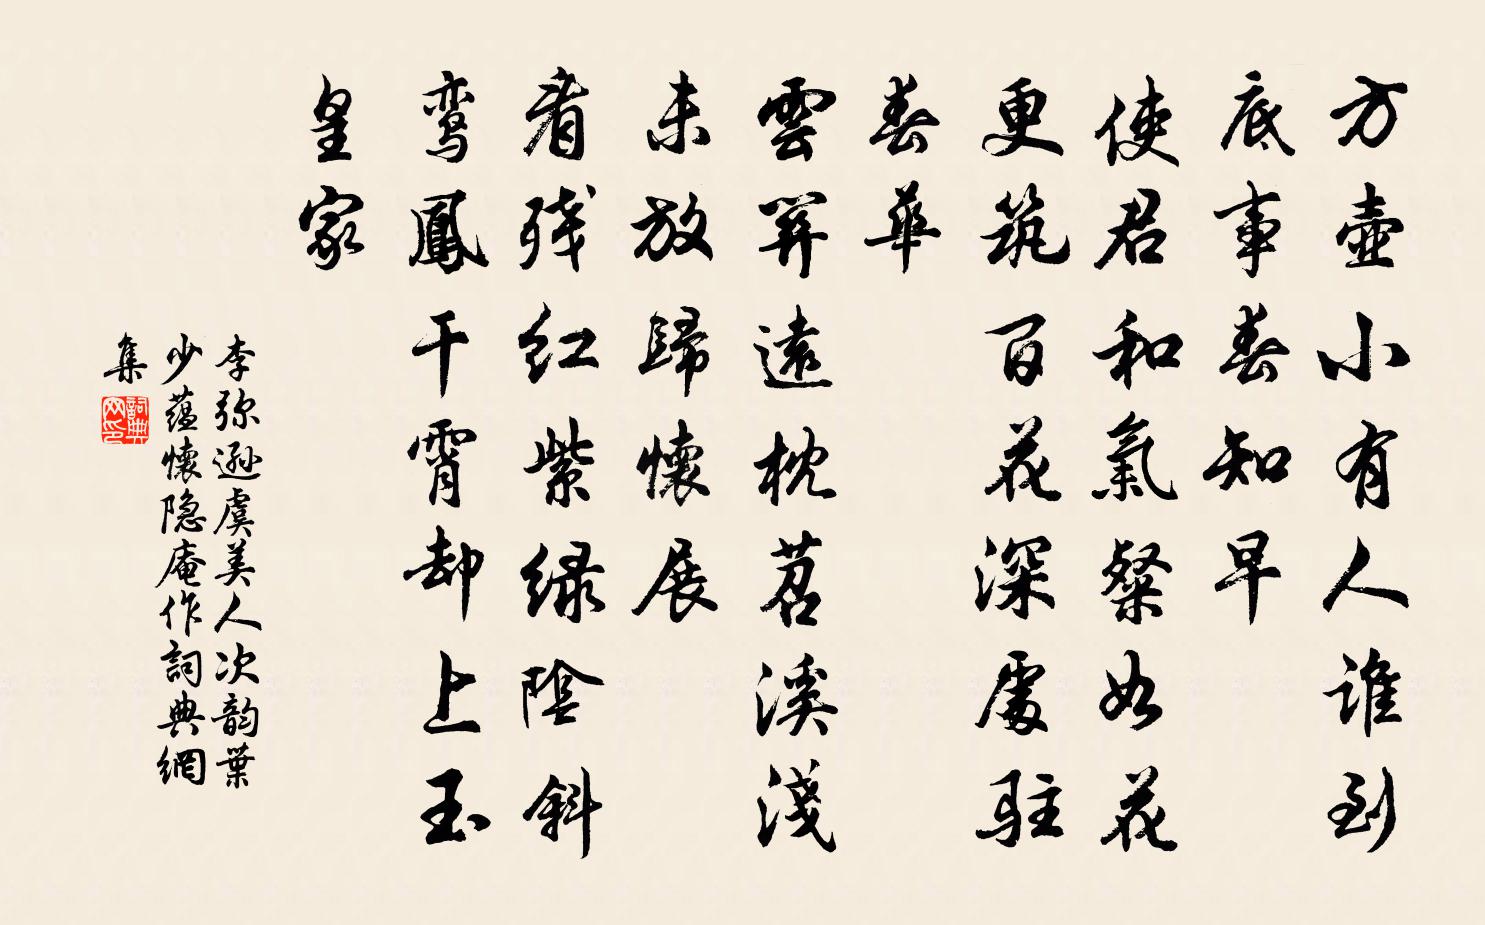 方壺小有人谁到
底事春知早
使君和氣粲如花
更筑百花深處駐
春華
雲關遠枕苕溪淺
未放歸懷展
看残红紫绿陰斜
鸾鳳干霄却上玉
皇家
李弥遜虞美人次韵葉
少蕴懷隐庵作詞典網
集
詞典
网印